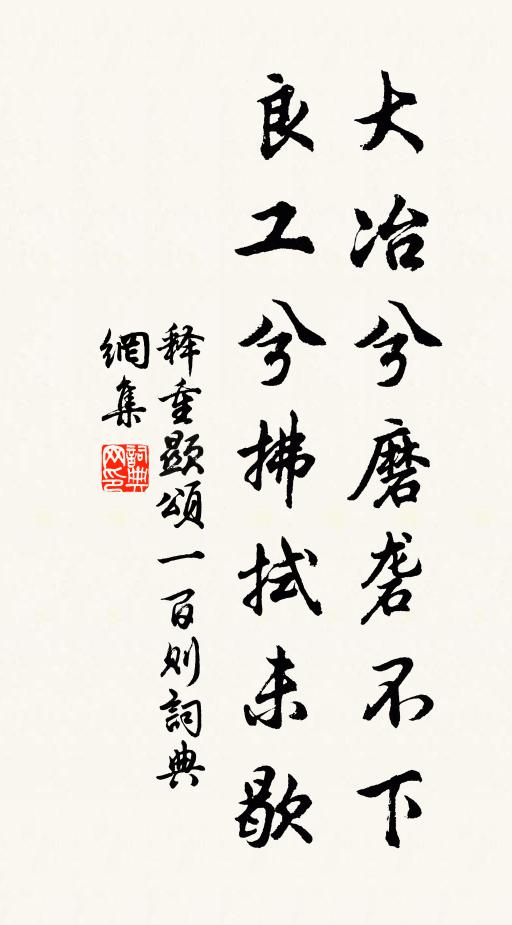 大冶兮磨砻不下
良工兮拂拭未歇
释重顯頌一百则詞典
網集
詞典
网印